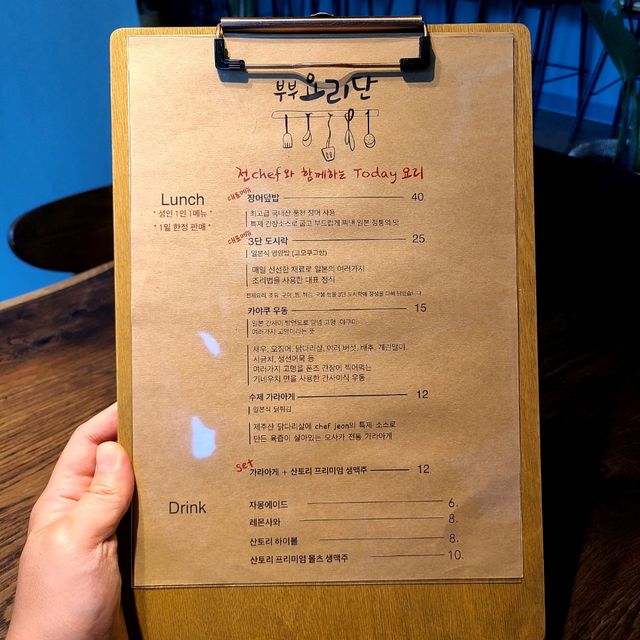 부부요리단
전chef와 함께하는 Today 요리
Lunch
* 성인 1인 1메뉴 *
* 1일 한정 판매 *
대표메뉴
장어덮밥 40
최고급 국내산 풍천 장어 사용
특제 간장소스로 굽고 부드럽게 쪄낸 일본 정통의 맛
대표메뉴
3단 도시락 25
일본식 영양밥 (고모쿠고항)
매일 신선한 재료로 일본의 여러가지
조리법을 사용한 대표 정식
카야쿠 우동 15
일본 간사이 방언으로 양념 고명 야쿠미
여러가지 고명이라는 뜻
새우, 오징어, 닭다리살, 여러 버섯, 배추, 계란말이,
시금치, 생선어묵 등
여러가지 고명을 폰즈 간장에 찍어먹는
기네우치 면을 사용한 간사이식 우동
수제 가라아게 12
일본식 닭튀김
제주산 닭다리살에 chef jeon의 특제 소스로
만든 육즙이 살아있는 오사카 전통 가라아게
set
가라아게 + 산토리 프리미엄 생맥주 12
Drink
자몽에이드 6.
레몬사와 8.
산토리 하이볼 8.
산토리 프리미엄 몰츠 생맥주 10.